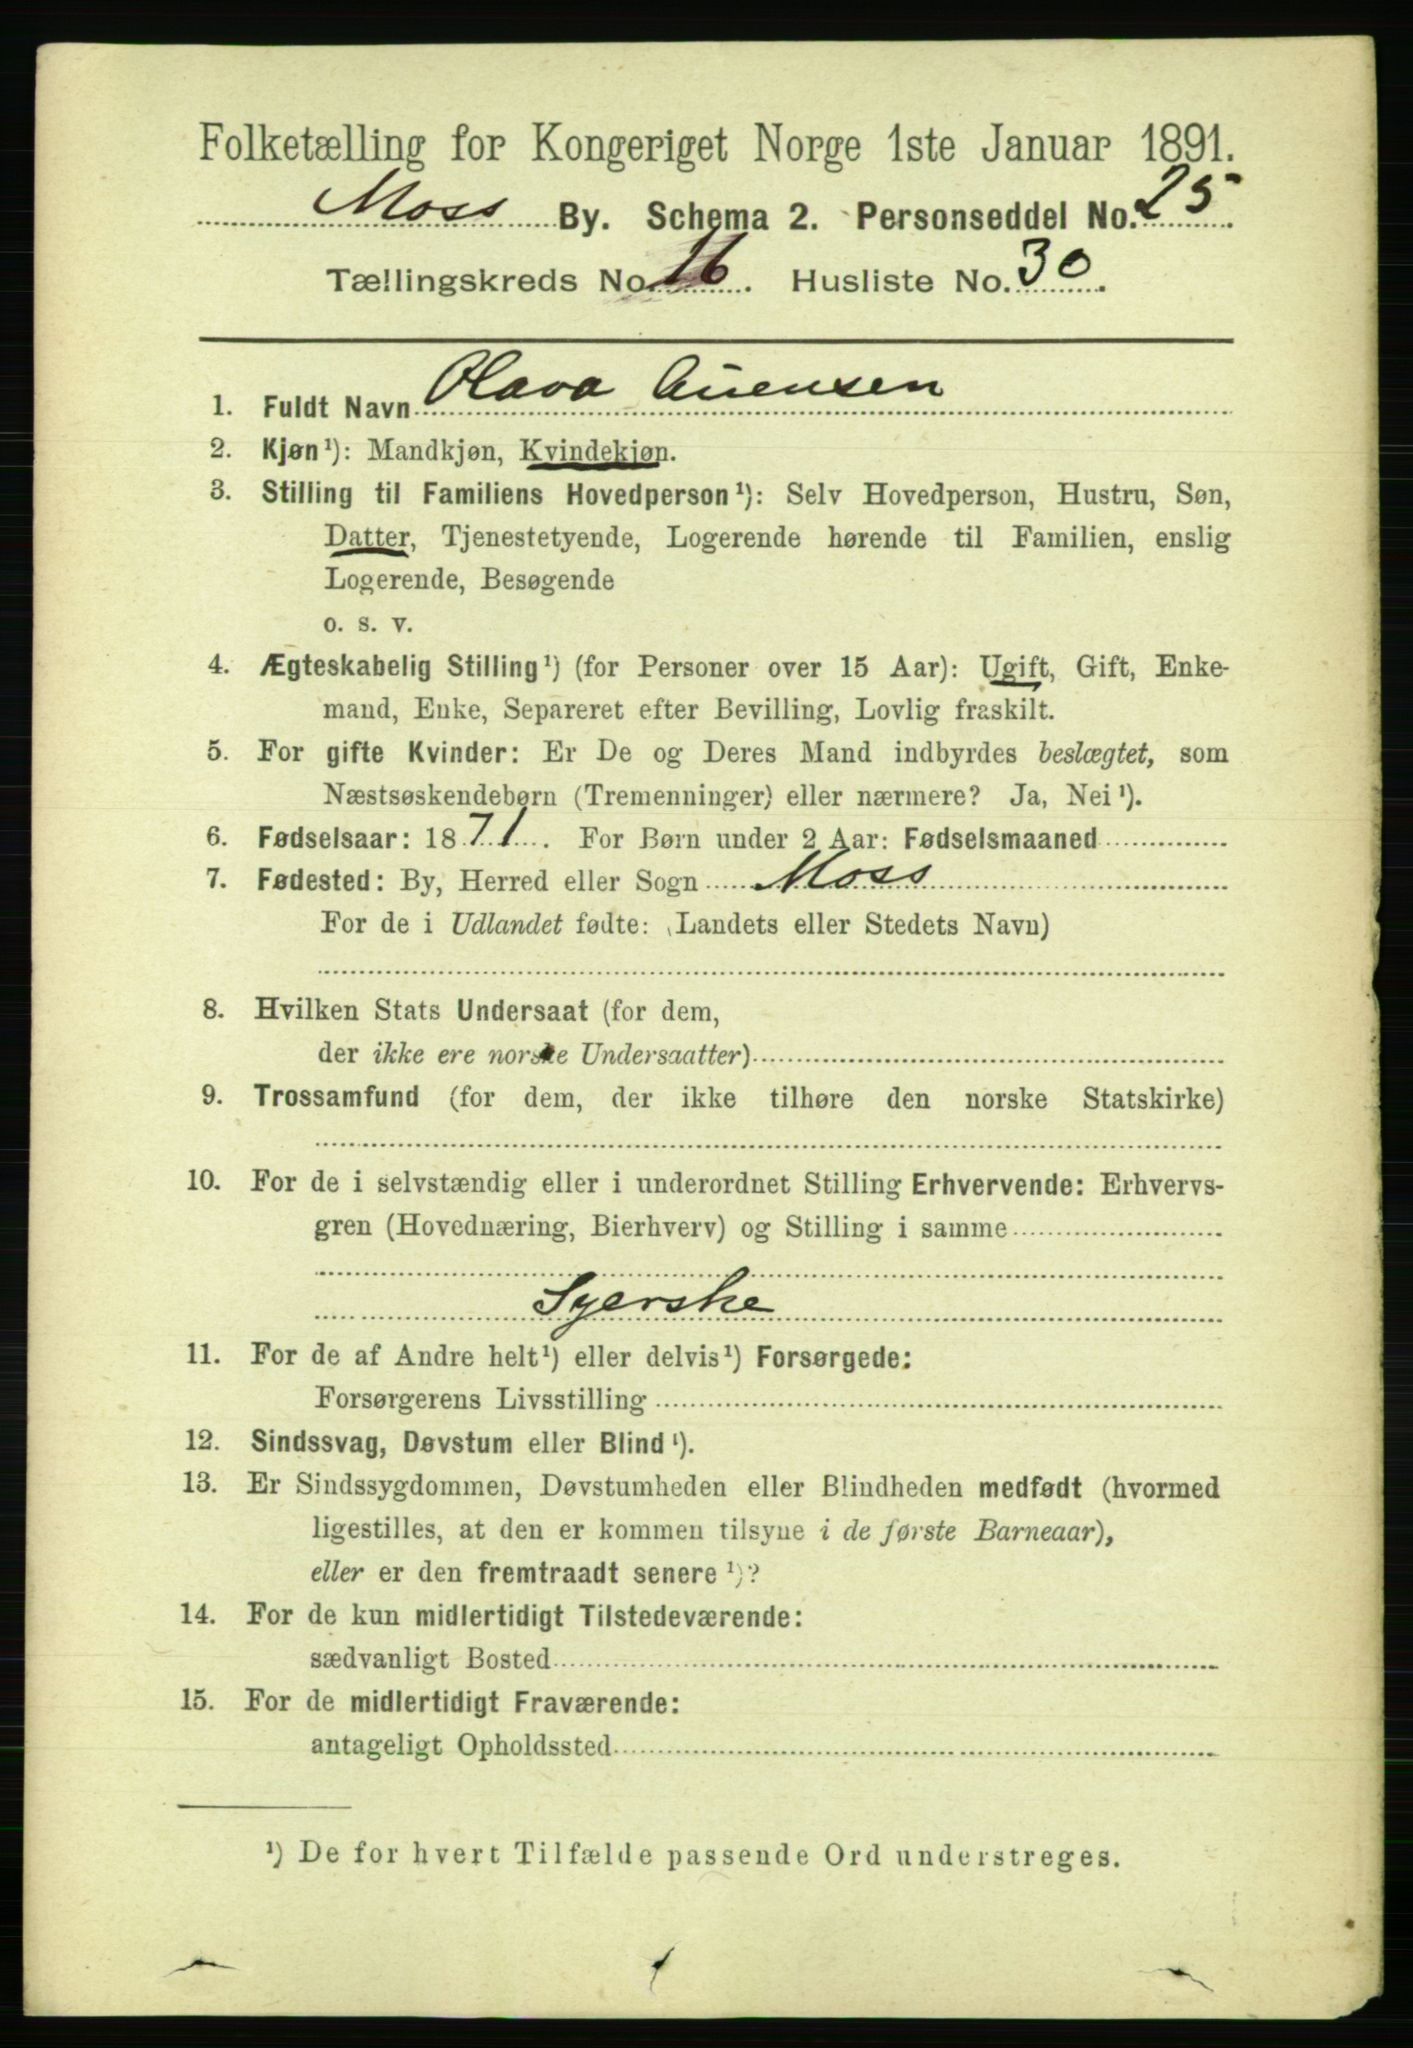 Folketælling for Kongeriget Norge 1ste Januar 1891.
Moss By. Schema 2. Personseddel No. 25.
Tællingskreds No. 16. Husliste No. 30.
1. Fuldt Navn Olava
2. Kjøn¹): Mandkjøn, Kvindekjøn.
3. Stilling til Familiens Hovedperson¹): Selv Hovedperson, Hustru, Søn,
Datter, Tjenestetyende, Logerende hørende til Familien, enslig
Logerende, Besøgende
o. s. v.
4. Ægteskabelig Stilling¹) (for Personer over 15 Aar): Ugift, Gift, Enke-
mand, Enke, Separeret efter Bevilling, Lovlig fraskilt.
5. For gifte Kvinder: Er De og Deres Mand indbyrdes beslægtet, som
Næstsøskendebørn (Tremenninger) eller nærmere? Ja, Nei¹).
6. Fødselsaar: 1871. For Børn under 2 Aar: Fødselsmaaned
7. Fødested: By, Herred eller Sogn Moss
For de i Udlandet fødte: (Landets eller Stedets Navn)
8. Hvilken Stats Undersaat (for dem,
der ikke ere norske Undersaatter)
9. Trossamfund (for dem, der ikke tilhøre den norske Statskirke)
10. For de i selvstændig eller i underordnet Stilling Erhvervende: Erhvervs-
gren (Hovednæring, Bierhverv) og Stilling i samme
Syerske
11. For de af Andre helt¹) eller delvis¹) Forsørgede:
Forsørgerens Livsstilling
12. Sindssvag, Døvstum eller Blind¹).
13. Er Sindssygdommen, Døvstumheden eller Blindheden medfødt (hvormed
ligestilles, at den er kommen tilsyne i de første Barneaar),
eller er den fremtraadt senere¹)?
14. For de kun midlertidigt Tilstedeværende:
sædvanligt Bosted
15. For de midlertidigt Fraværende:
antageligt Opholdssted
¹) De for hvert Tilfælde passende Ord understreges.